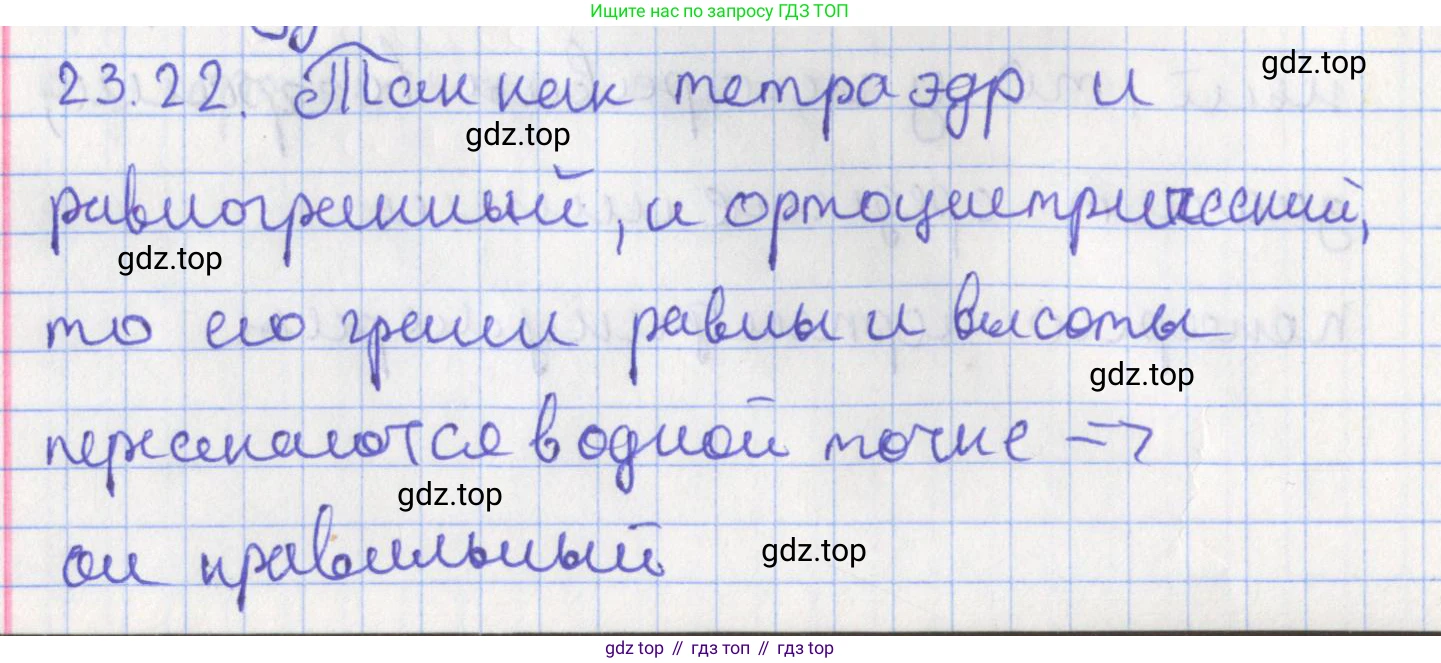 Ищите нас по запросу ГДЗ ТОП
23.22. Так как тетраэдр и
gdz.top
gdz.top
равногранный, и ортоцентрический,
gdz.top
то его грани равны и высоты
gdz.top
пересекаются в одной точке =>
gdz.top
он правильный
gdz.top
gdz top // гдз топ // гдз top